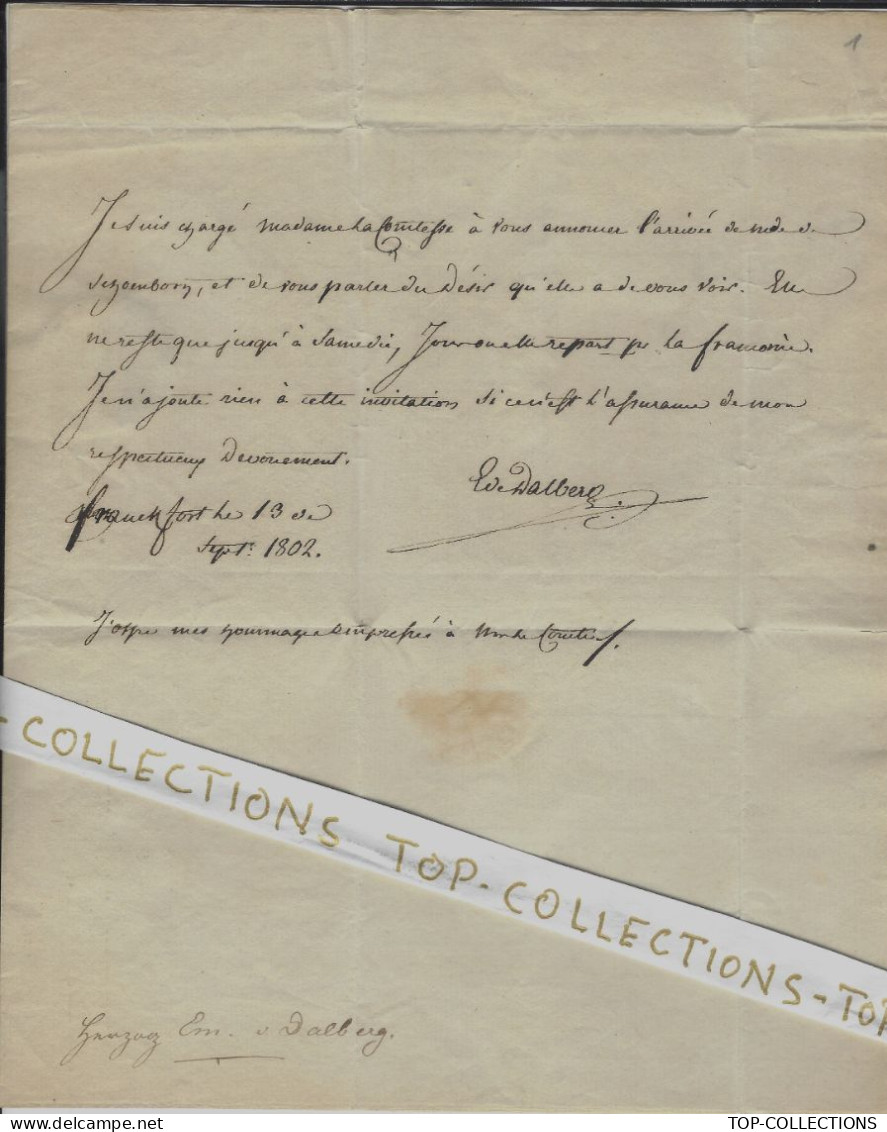 1
Je suis chargé Madame la Comtesse à vous annoncer l'arrivée de mde de
Schoenborn, et de vous parler du Désir qu'elle a de vous voir. Elle
ne reste que jusqu'à Samedi, Jour ou elle repart pr la franconie.
Je n'ajoute rien à cette invitation si ce n'est l'assurance de mon
respectueux Devouement.
E de Dalberg
franckfort le 13 de
Sept: 1802.
J'offre mes hommages empressés à Mr le Comte
- COLLECTIONS TOP-COLLECTIONS-TOP
Herzog Em. v Dalberg.
TOP-COLLECTIONS